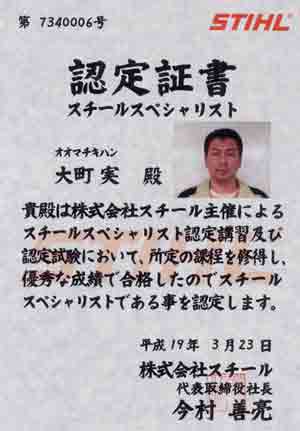 第 7340006号
STIHL
認定証書
スチールスペシャリスト
オオマチキハン
大町 実 殿
貴殿は株式会社スチール主催による
スチールスペシャリスト認定講習及び
認定試験において、所定の課程を修得し、
優秀な成績で合格したのでスチール
スペシャリストである事を認定します。
平成19年 3月23日
株式会社スチール
代表取締役社長
今村 善亮